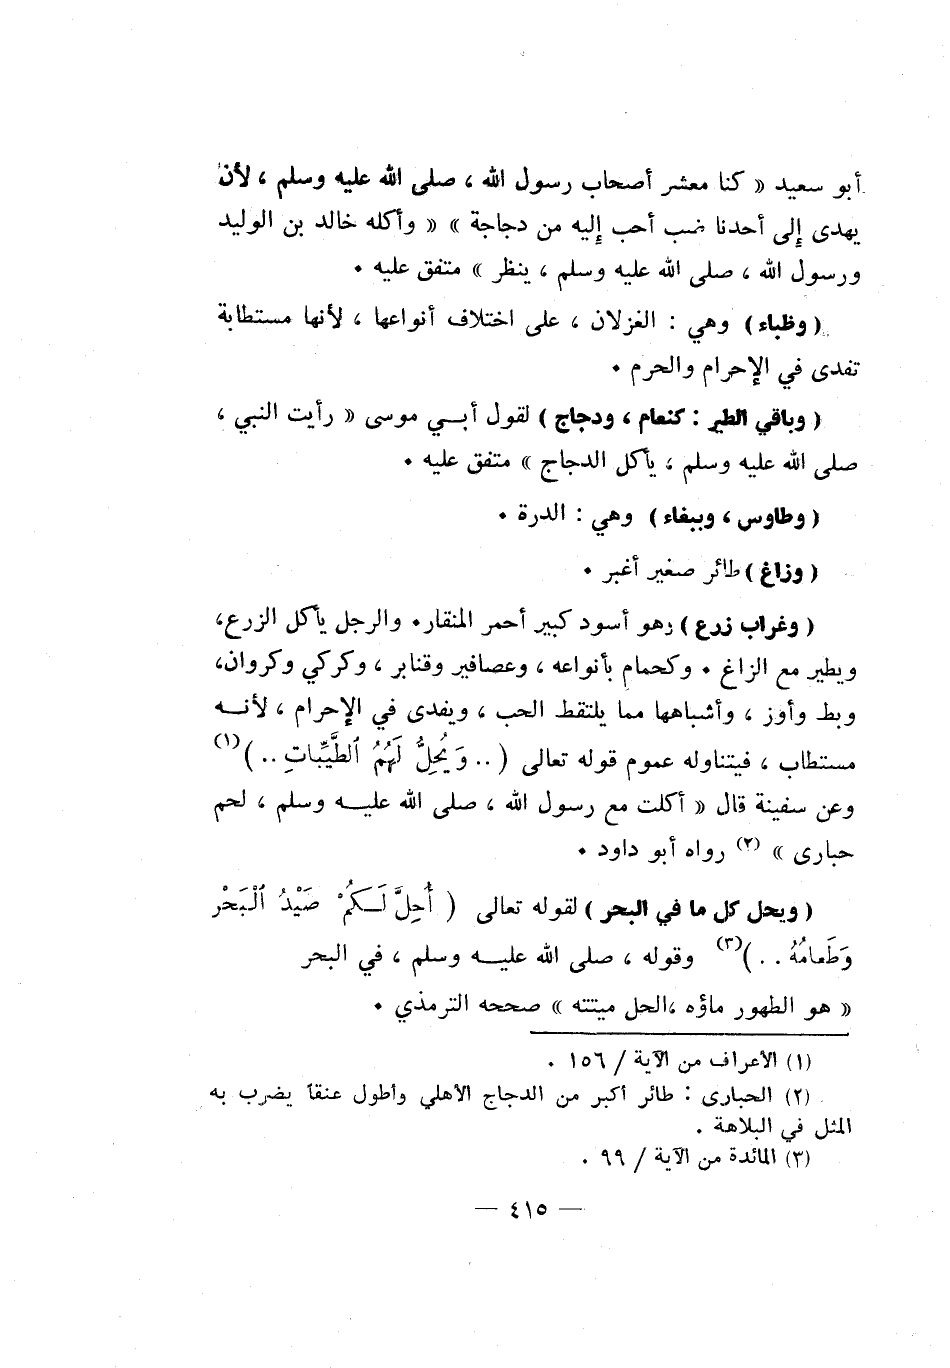 أبو سعيد « كنا معشر أصحاب رسول الله ، صلى الله عليه وسلم ، لأن
يهدى إلى أحدنا ضب أحب إليه من دجاجة » « وأكله خالد بن الوليد
ورسول الله ، صلى الله عليه وسلم ، ينظر » متفق عليه .
( وظباء ) وهي : الغزلان ، على اختلاف أنواعها ، لأنها مستطابة
تفدى في الإحرام والحرم .
( وباقي الطير : كنعام ، ودجاج ) لقول أبي موسى « رأيت النبي ،
صلى الله عليه وسلم ، يأكل الدجاج » متفق عليه .
( وطاوس ، وببغاء ) وهي : الدرة .
( وزاغ ) طائر صغير أغبر .
( وغراب زرع ) وهو أسود كبير أحمر المنقار . والرجل يأكل الزرع ،
ويطير مع الزاغ . وكحمام بأنواعه ، وعصافير وقنابر ، وكركي وكروان،
وبط وأوز ، وأشباهها مما يلتقط الحب ، ويفدى في الإحرام ، لأنه
مستطاب ، فيتناوله عموم قوله تعالى ( .. وَيُحِلُّ لَهُمُ ٱلطَّيِّبَاتِ .. )(١)
وعن سفينة قال « أكلت مع رسول الله ، صلى الله عليه وسلم ، لحم
حبارى » (٢) رواه أبو داود .
( ويحل كل ما في البحر ) لقوله تعالى ( أُحِلَّ لَكُمْ صَيْدُ ٱلْبَحْرِ
وَطَعَامُهُ . . )(٣) وقوله ، صلى الله عليه وسلم ، في البحر
« هو الطهور ماؤه ،الحل ميتته » صححه الترمذي .
(١) الأعراف من الآية / ١٥٦ .
(٢) الحبارى : طائر أكبر من الدجاج الأهلي وأطول عنقاً يضرب به
المثل في البلاهة .
(٣) المائدة من الآية / ٩٩ .
— ٤١٥ —